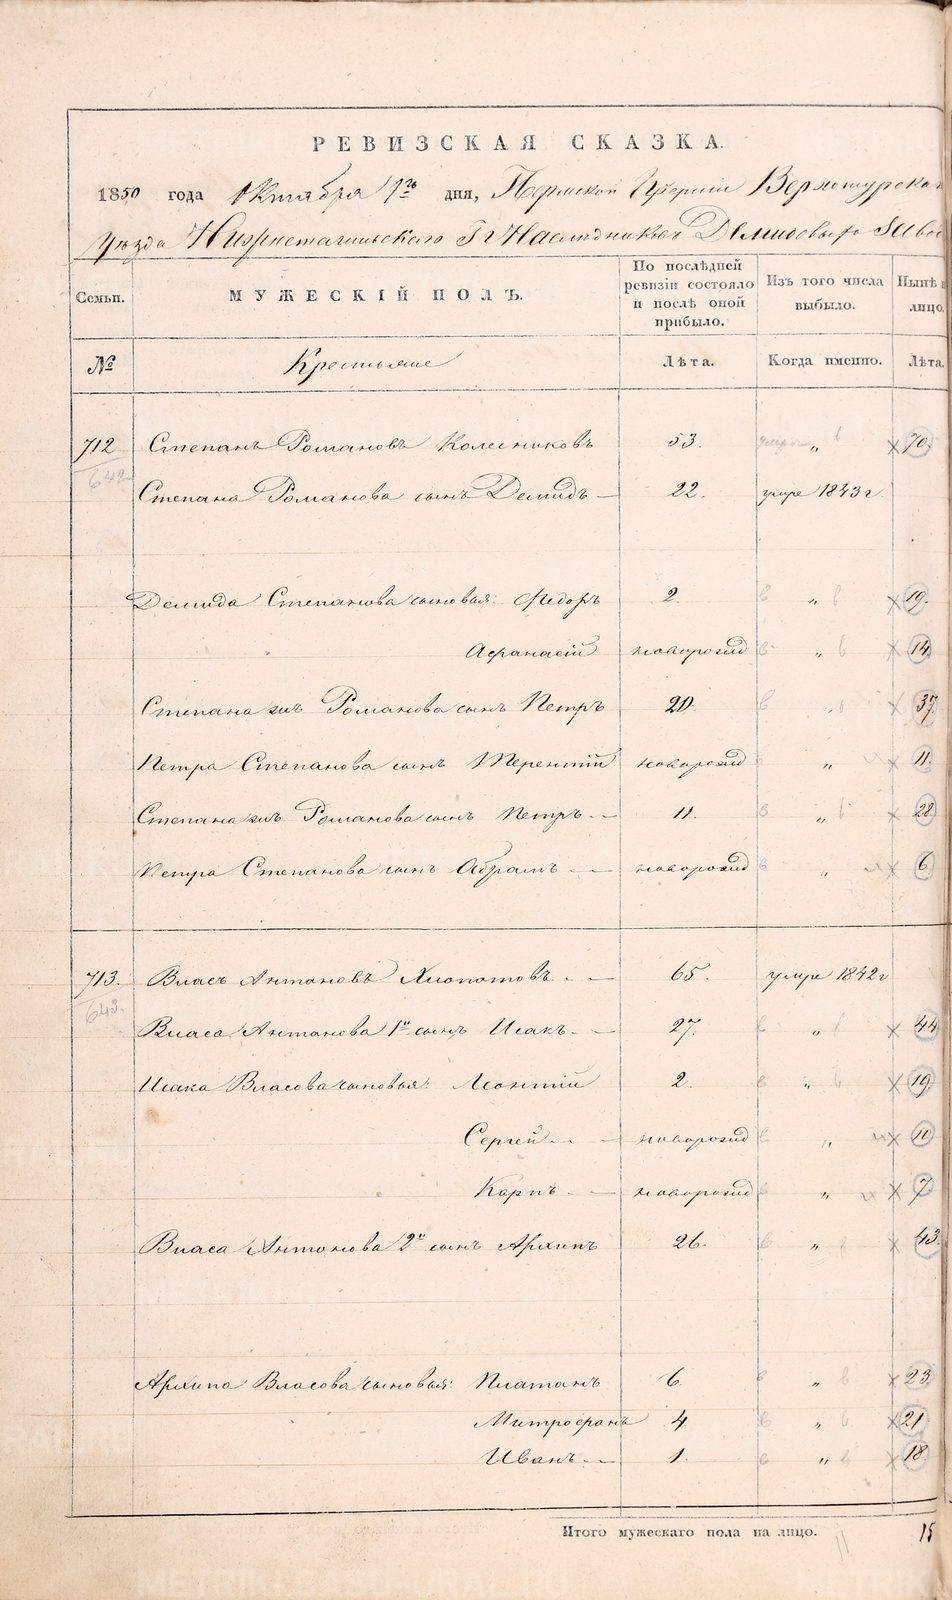 РЕВИЗСКАЯ СКАЗКА.
1850 года Октября 1го дня, Пермской Губерніи Верхотурскаго
Уѣзда Нижнетагильскаго Гг Наслѣдниковъ Демидовыхъ Заво
Семьи. МУЖЕСКІЙ ПОЛЪ. По послѣдней ревизіи состояло и послѣ оной прибыло. Изъ того числа выбыло. Нынѣ лицо.
№ Крестьяне Лѣта. Когда именно. Лѣта.
712 Степанъ Романовъ Колесниковъ 53. „ 70.
642 Степана Романова сынъ Демидъ — 22. умре 1843 г.
Демида Степанова сыновья: Ѳедоръ 2. „ 19.
Афанасій новорожд „ 14
Степана жъ Романова сынъ Петръ 20. „ 37.
Петра Степанова сынъ Терентій новорожд „ 11.
Степана жъ Романова сынъ Петръ — 11. „ 28
Петра Степанова сынъ Абрамъ — новорожд „ 6
713. Власъ Антоновъ Хлопотовъ — 65. умре 1842 г
643. Власа Антонова 1й сынъ Исакъ — 27. „ 44
Исака Власова сыновья: Леонтій 2. „ 19
Сергей — новорожд „ 10
Карпъ — новорожд „ 7
Власа Антонова 2й сынъ Архипъ 26. „ 43.
Архипа Власова сыновья: Платонъ 6. „ 23
Митрофанъ 4 „ 21
Иванъ — 1. „ 18
Итого мужескаго пола на лицо. 15
METRIKI.GASO-URAL.RU